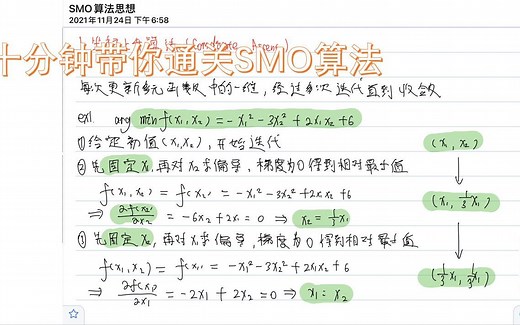 SMO算法思想
2021年11月24日 下午6:58
(Coordinate Ascent)
十分钟带你通关SMO算法
每次更新多元函数中的一维，经过多次迭代直到收敛
ex1. arg min f(x₁, x₂) = -x₁² - 3x₂² + 2x₁x₂ + 6
①给定初值(x₁, x₂), 开始迭代
(x₁, x₂)
②先固定x₁, 再对x₂求偏导, 梯度为0得到相对最小值
f(x₁, x₂) = f(x₂) = -x₁² - 3x₂² + 2x₁x₂ + 6
⇒ ∂f(x₂)/∂x₂ = -6x₂ + 2x₁ = 0 ⇒ x₂ = ⅓x₁
(x₁, ⅓x₁)
③先固定x₂, 再对x₁求偏导, 梯度为0得到相对最小值
f(x₁, x₂) = f(x₁) = -x₁² - 3x₂² + 2x₁x₂ + 6
⇒ ∂f(x₁)/∂x₁ = -2x₁ + 2x₂ = 0 ⇒ x₁ = x₂
(⅓x₁, ⅓x₁)